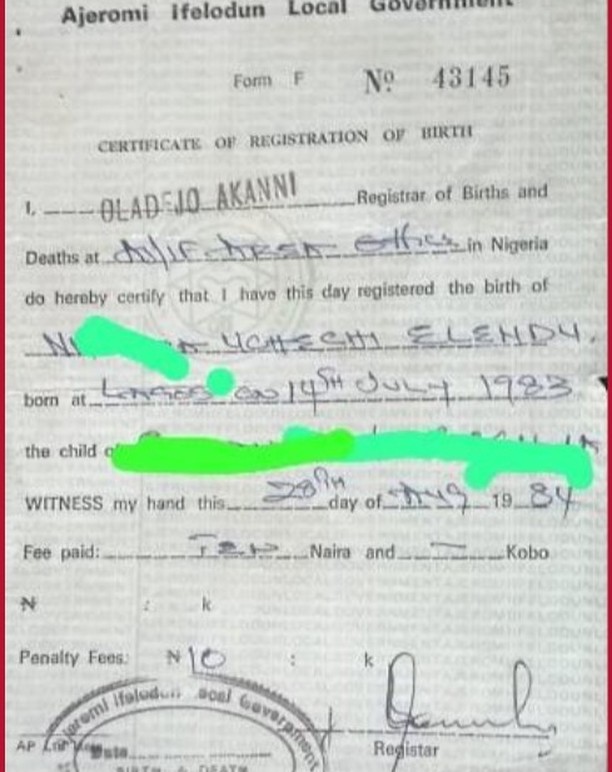 Ajeromi Ifelodun Local Government
Form F No 43145
CERTIFICATE OF REGISTRATION OF BIRTH
I, OLADEJO AKANNI Registrar of Births and
Deaths at Office in Nigeria
do hereby certify that I have this day registered the birth of
UCHECHI ELENDU.
born at LAGOS ON 14TH JULY 1983
the child of
WITNESS my hand this 28TH day of AUG 19 84
Fee paid: TEN Naira and — Kobo
₦ : k
Penalty Fees: ₦ 10 : k
Registar
Ajeromi Ifelodun Local Government
Date
BIRTH & DEATH